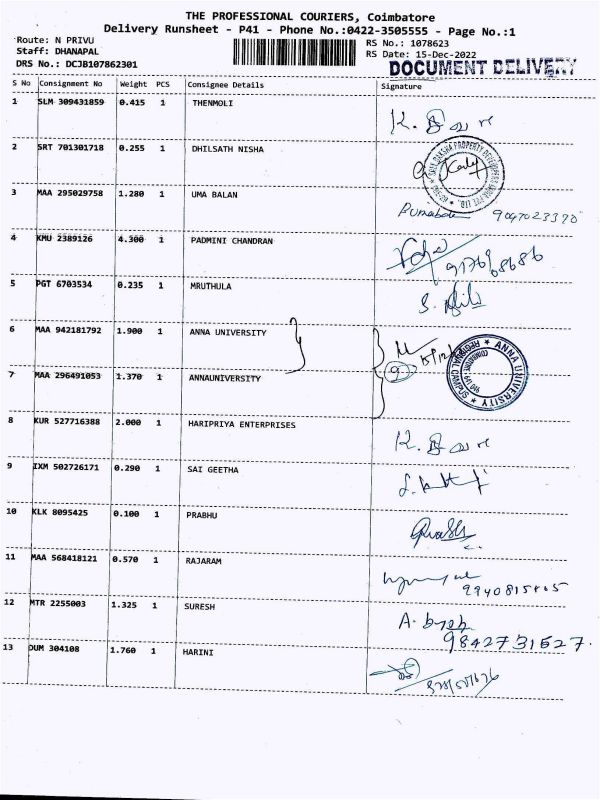 THE PROFESSIONAL COURIERS, Coimbatore
Delivery Runsheet - P41 - Phone No.:0422-3505555 - Page No.:1
Route: N PRIVU
RS No.: 1078623
Staff: DHANAPAL
RS Date: 15-Dec-2022
DRS No.: DCJB107862301
DOCUMENT DELIVERY
S No Consignment No Weight PCS Consignee Details Signature
1 SLM 309431859 0.415 1 THENMOLI
2 SRT 701301718 0.255 1 DHILSATH NISHA
3 MAA 295029758 1.280 1 UMA BALAN
4 KMU 2389126 4.300 1 PADMINI CHANDRAN
5 PGT 6703534 0.235 1 MRUTHULA
6 MAA 942181792 1.900 1 ANNA UNIVERSITY
ANNA UNIVERSITY
REGIONAL CAMPUS
7 MAA 296491053 1.370 1 ANNAUNIVERSITY
8 KUR 527716388 2.000 1 HARIPRIYA ENTERPRISES
9 IXM 502726171 0.290 1 SAI GEETHA
10 KLK 8095425 0.100 1 PRABHU
11 MAA 568418121 0.570 1 RAJARAM
12 MTR 2255003 1.325 1 SURESH
9842731527.
13 DUM 304108 1.760 1 HARINI